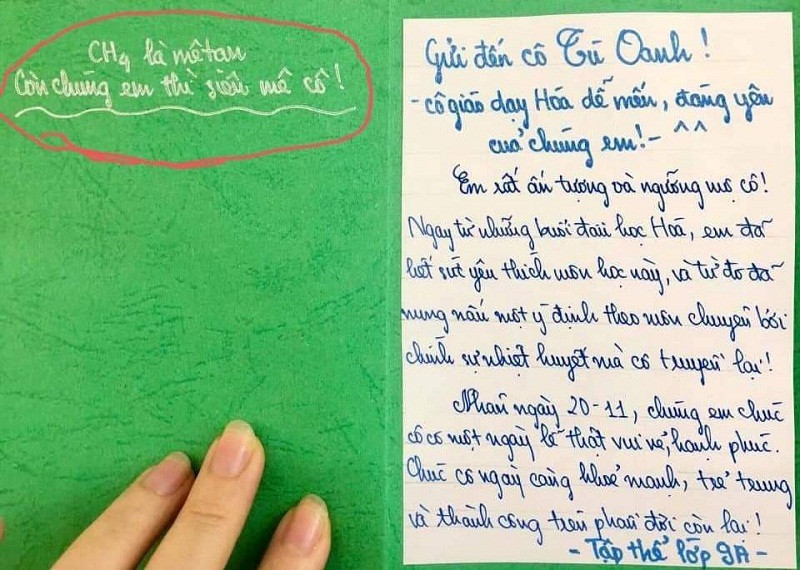 CH4 là mêtan
Còn chúng em thì siêu mê cô!
Gửi đến cô Tú Oanh!
- cô giáo dạy Hóa dễ mến, đáng yêu
của chúng em! - ^^
Em rất ấn tượng và ngưỡng mộ cô!
Ngay từ những buổi đầu học Hoá, em đã
hết sức yêu thích môn học này, và từ đó đã
nung nấu một ý định theo môn chuyên bởi
chính sự nhiệt huyết mà cô truyền lại!
Nhân ngày 20-11, chúng em chúc
cô có một ngày lễ thật vui vẻ, hạnh phúc.
Chúc cô ngày càng khoẻ mạnh, trẻ trung
và thành công trên phần đời còn lại!
- Tập thể lớp 9A -